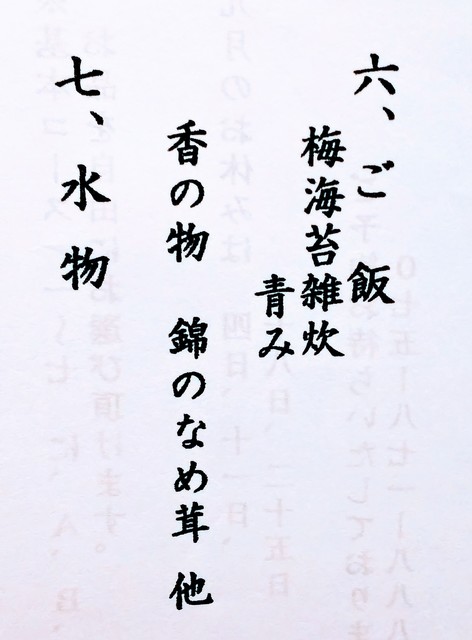 六、ご飯
梅海苔雑炊
青み
香の物 錦のなめ茸 他
七、水物